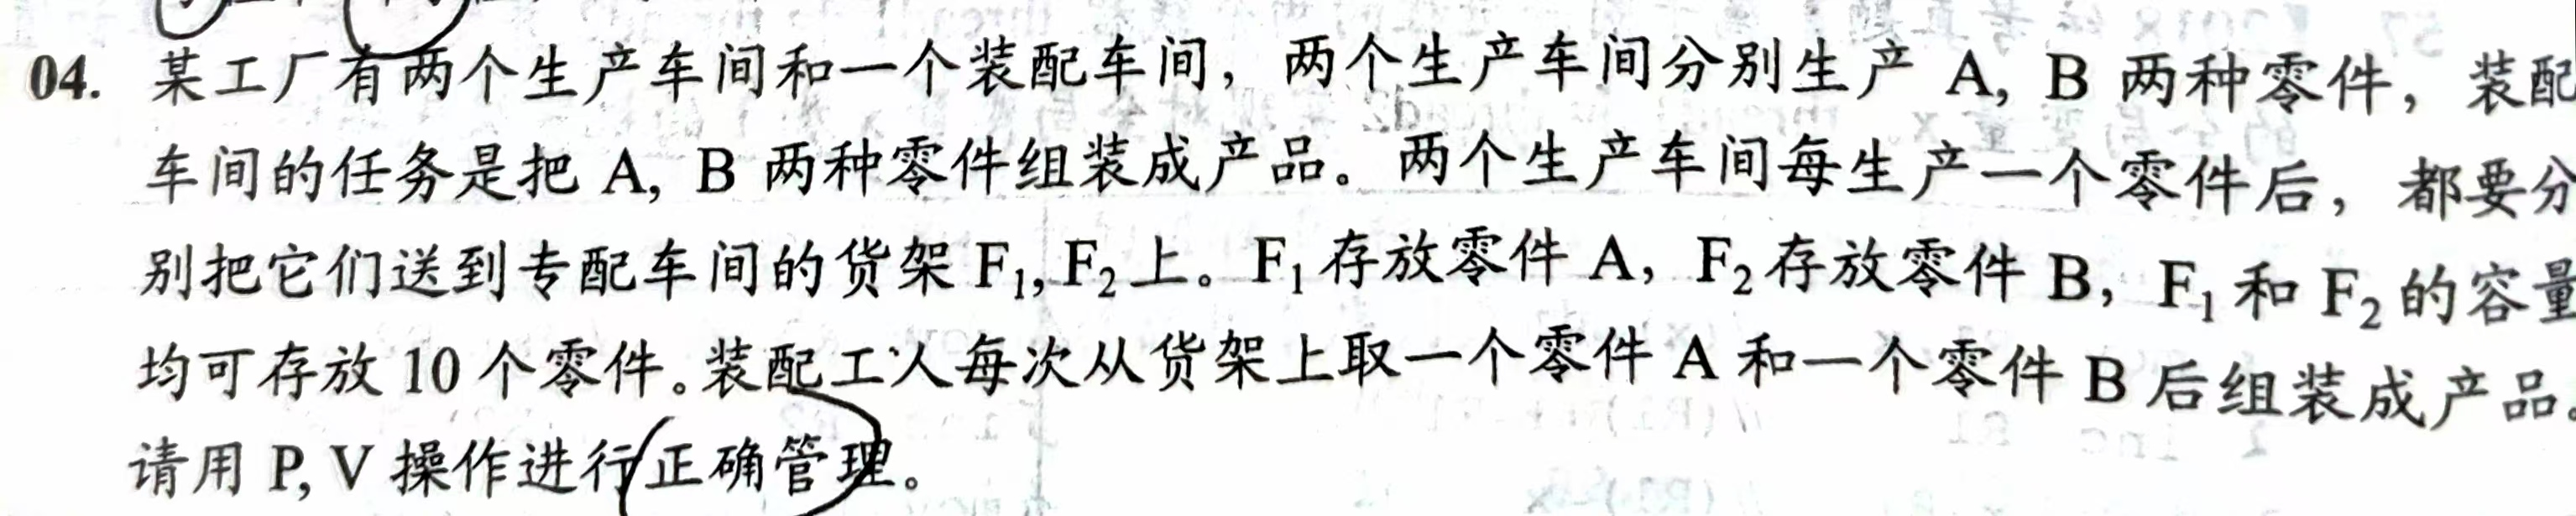 04. 某工厂有两个生产车间和一个装配车间，两个生产车间分别生产 A, B 两种零件，装配
车间的任务是把 A, B 两种零件组装成产品。两个生产车间每生产一个零件后，都要分
别把它们送到专配车间的货架 F₁, F₂ 上。F₁ 存放零件 A，F₂ 存放零件 B，F₁ 和 F₂ 的容量
均可存放 10 个零件。装配工人每次从货架上取一个零件 A 和一个零件 B 后组装成产品。
请用 P, V 操作进行正确管理。